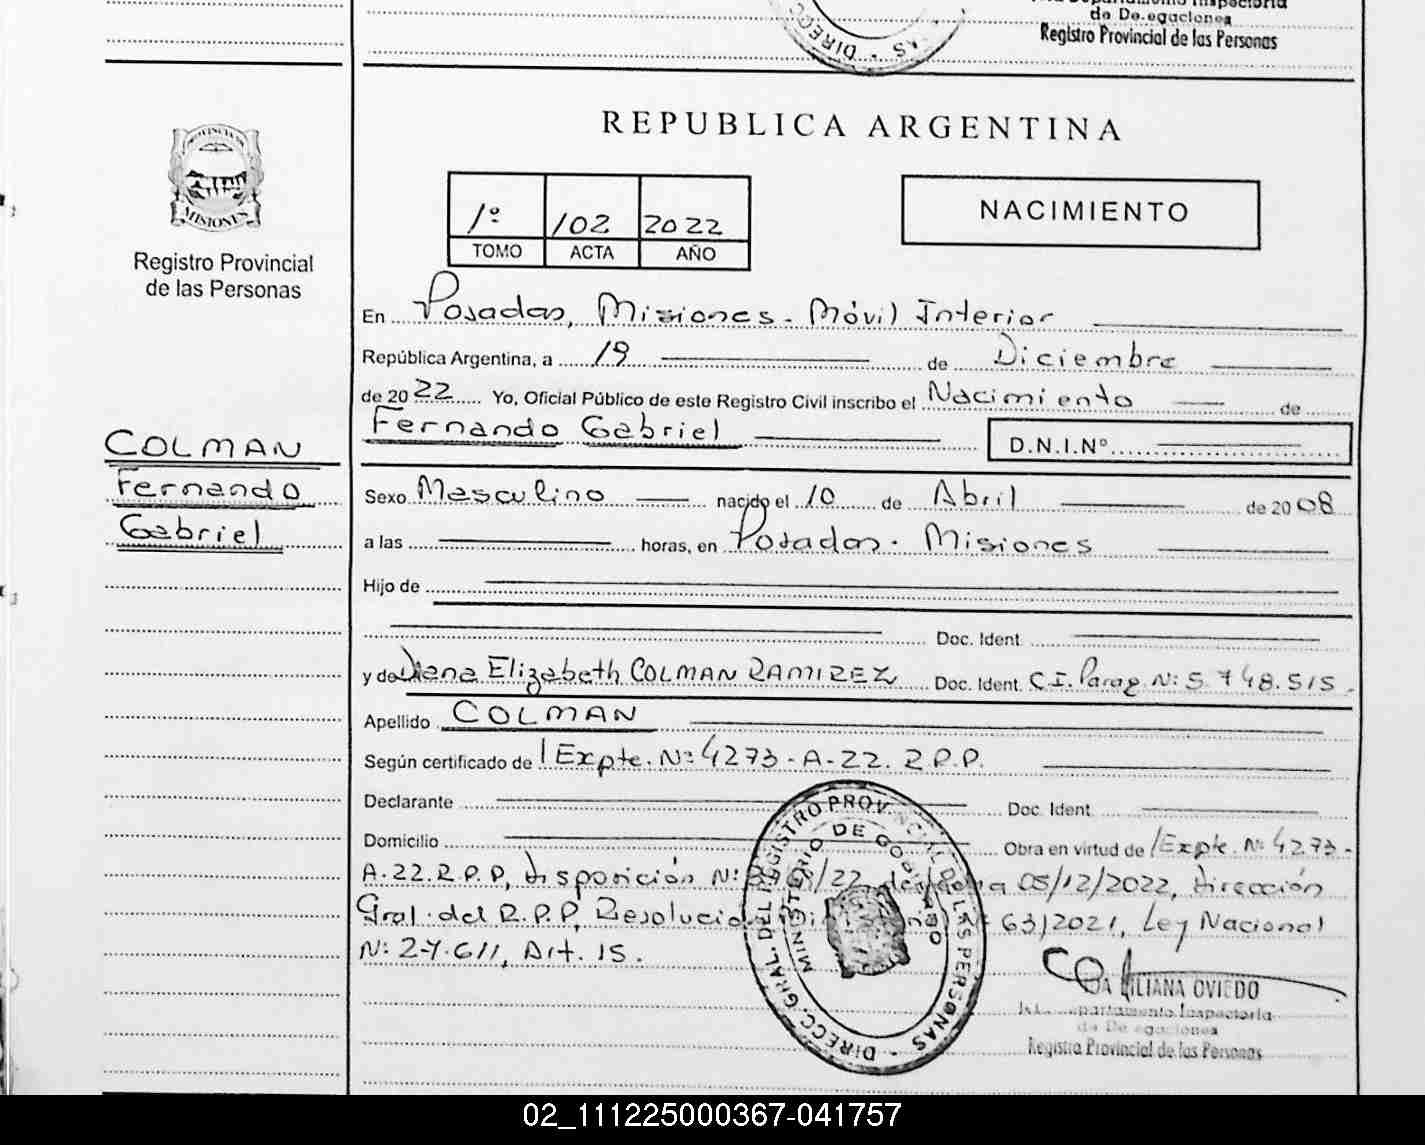 de Delegaciones
Registro Provincial de las Personas
DIRECC
AS
REPUBLICA ARGENTINA
PROVINCIA DE
MISIONES
Registro Provincial
de las Personas
1º 102 2022
TOMO ACTA AÑO
NACIMIENTO
En Posadas, Misiones - Móvil Interior
República Argentina, a 19 de Diciembre
de 2022 Yo, Oficial Público de este Registro Civil inscribo el Nacimiento de
Fernando Gabriel D.N.I.Nº
COLMAN
Fernando
Gabriel
Sexo Masculino nacido el 10 de Abril de 2008
a las horas, en Posadas - Misiones
Hijo de
Doc. Ident.
y de Diana Elizabeth COLMAN RAMIREZ Doc. Ident. C.I. Parag. Nº: 5.748.515.
Apellido COLMAN
Según certificado de Expte. Nº 4273-A-22. R.P.P.
Declarante Doc. Ident.
Domicilio Obra en virtud de Expte. Nº 4273-
A-22.R.P.P, Disposición Nº /22, de fecha 05/12/2022, Dirección
Gral. del R.P.P, Resolución 63/2021, Ley Nacional
Nº: 27.611, Art. 15.
DIRECC. GRAL. DEL REGISTRO PROVINCIAL DE LAS PERSONAS
MINISTERIO DE GOBIERNO
LILIANA OVIEDO
Departamento Inspectoría
de Delegaciones
Registro Provincial de las Personas
02_111225000367-041757